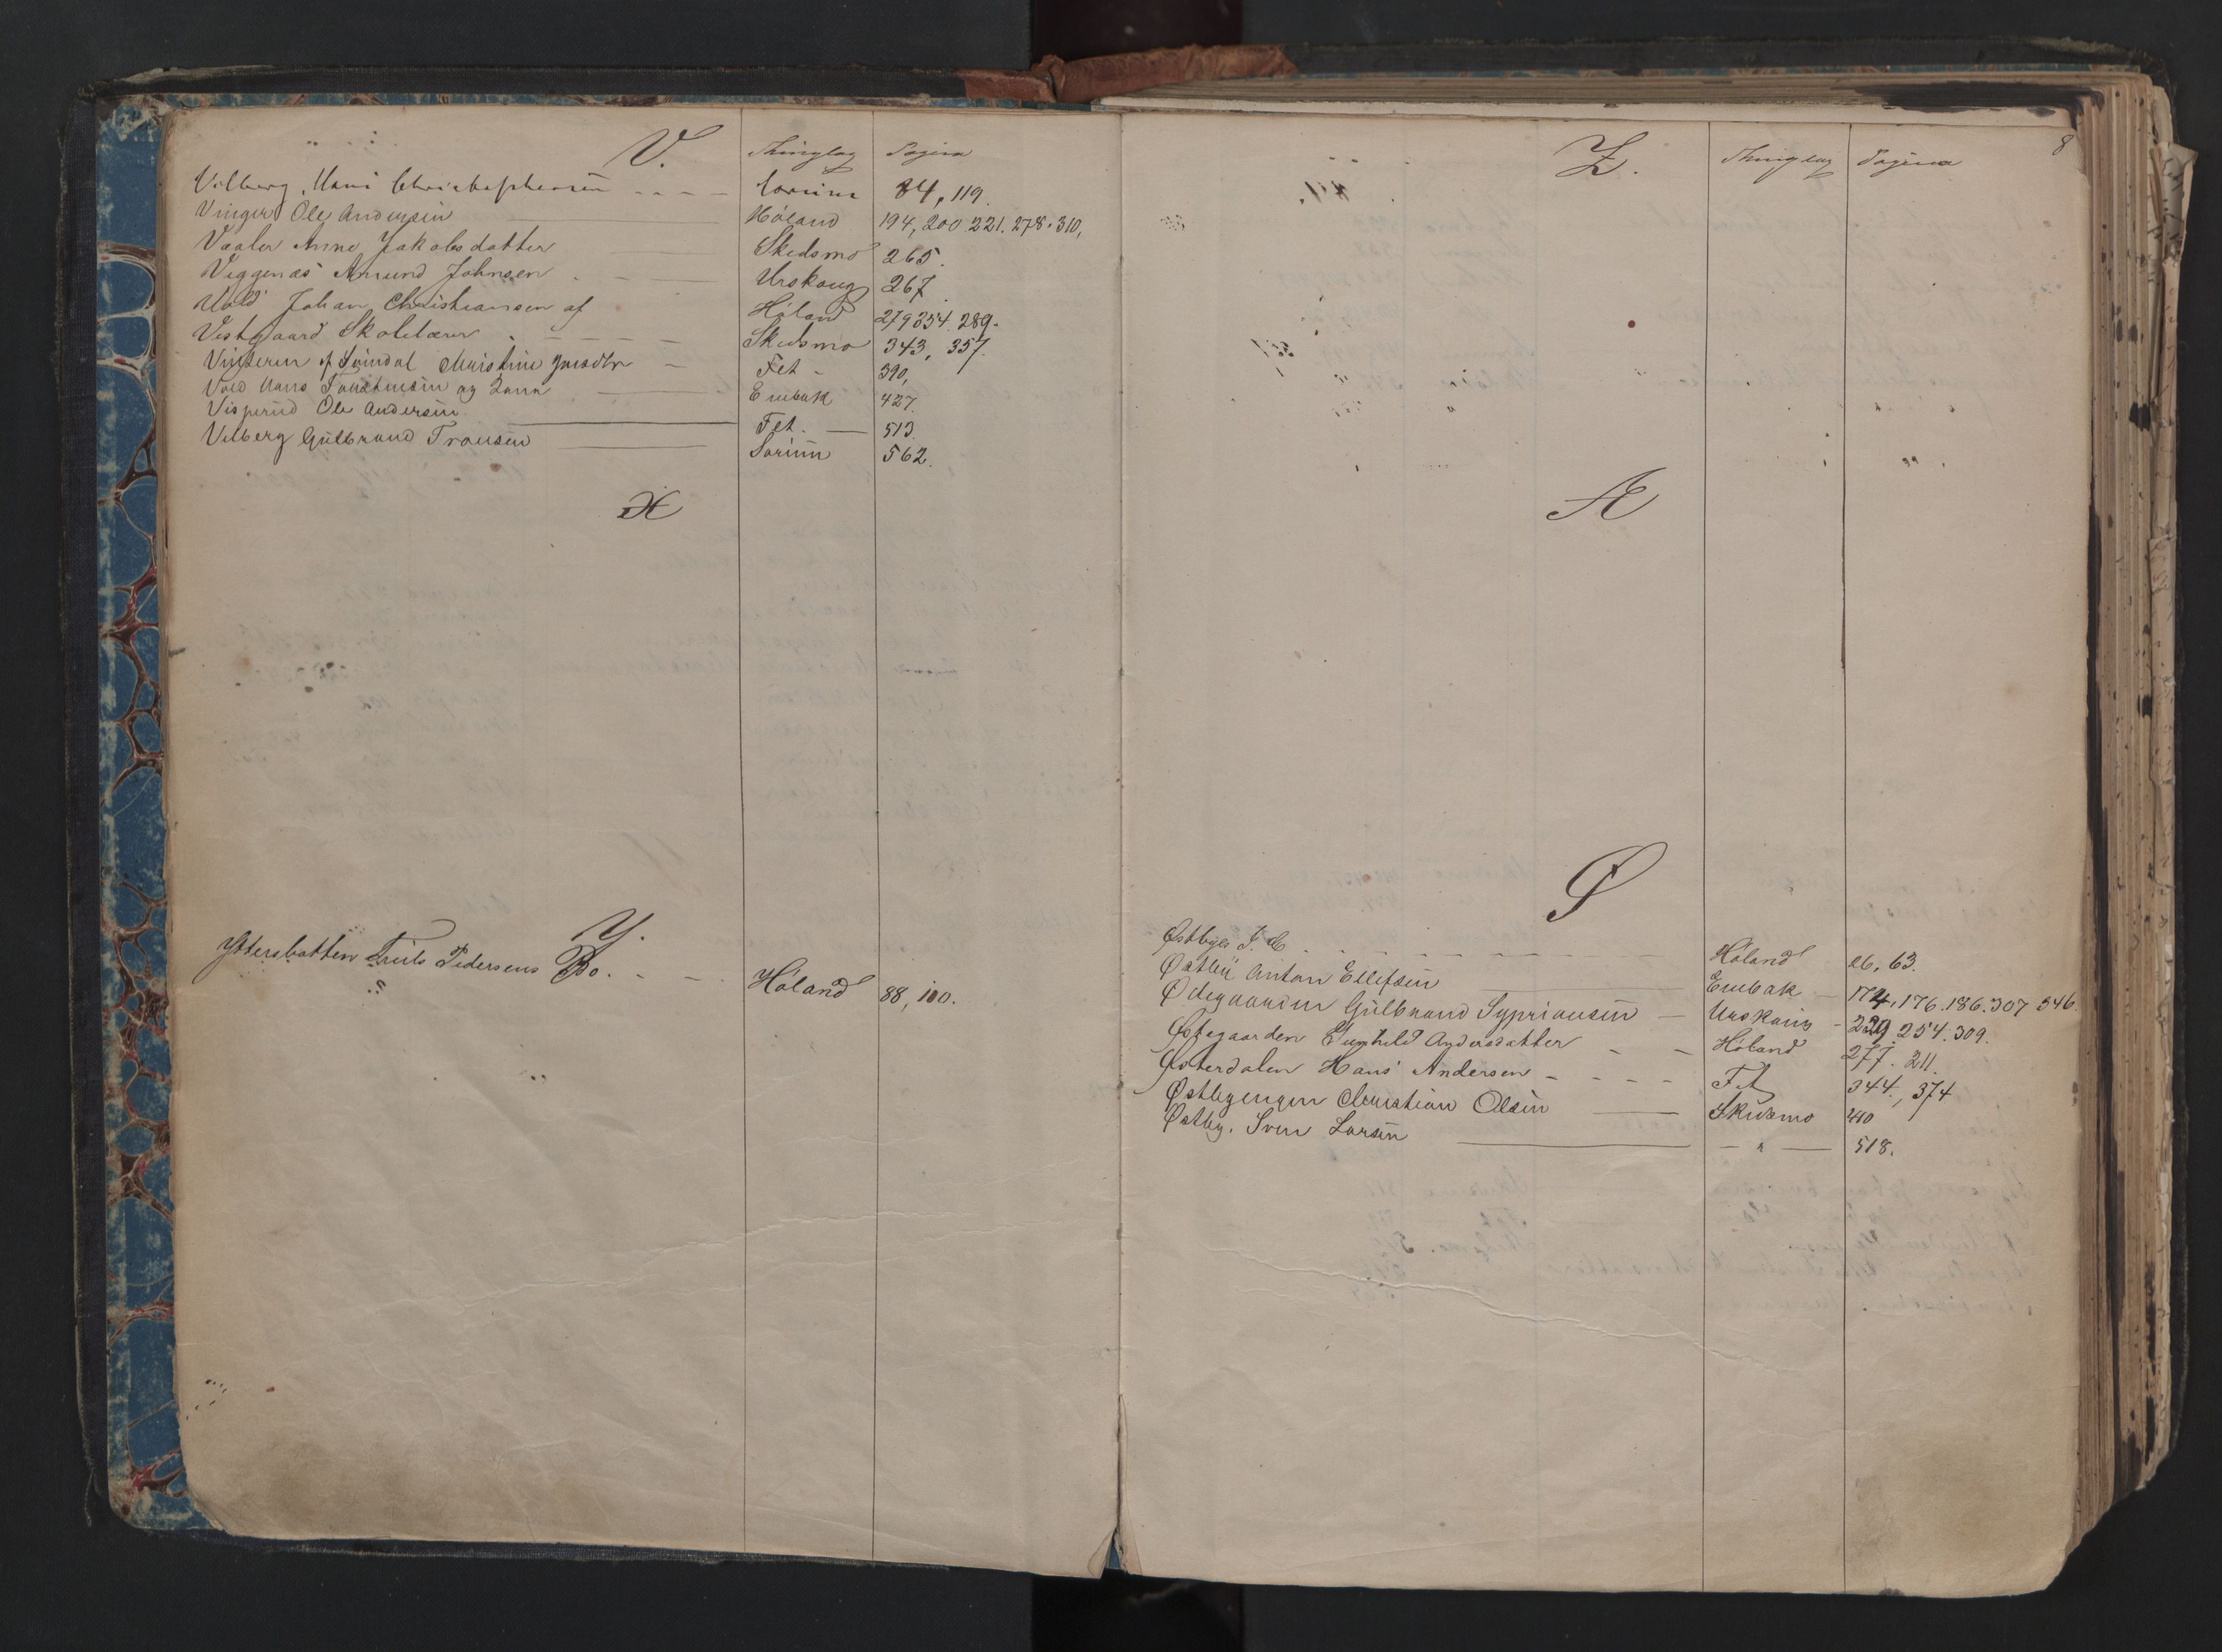 V. Thinglag Pagina
Vilberg, Hans Christophersen Sørum 84, 119.
Vinger Ole Andersen Høland 194, 200 221. 278. 310,
Vaaler Anne Jakobsdatter Skedsmo 265.
Veggenæs Amund Johnsen Urskoug 267.
Vold Johan Christiansen af Høland 279 354. 289.
Vestgaard Skolelærer Skedsmo 343, 357.
af Fet 390,
Vold Hans og Enebak 427.
Visperud Ole Andersen Fet. 513.
Vilberg Gulbrand Tronsen Sørum 562.
X
Y.
Yttersbotten Truls Pedersens Bo. Høland 88, 100.
8
Z. Thinglag Pagina
Æ
Ø
Østbye J. C. Høland 26, 63.
Østby Anton Ellefsen Enebak 174, 176. 186. 307 346.
Ødegaarden Gulbrand Sypriansen Urskoug 229 254. 309.
Østgaarden Gunhild Andersdatter Høland 277. 211.
Østerdalen Hans Andersen Fet 344., 374
Østbyengen Christian Olsen Skedsmo 410
Østby. Sven Larsen — " — 518.